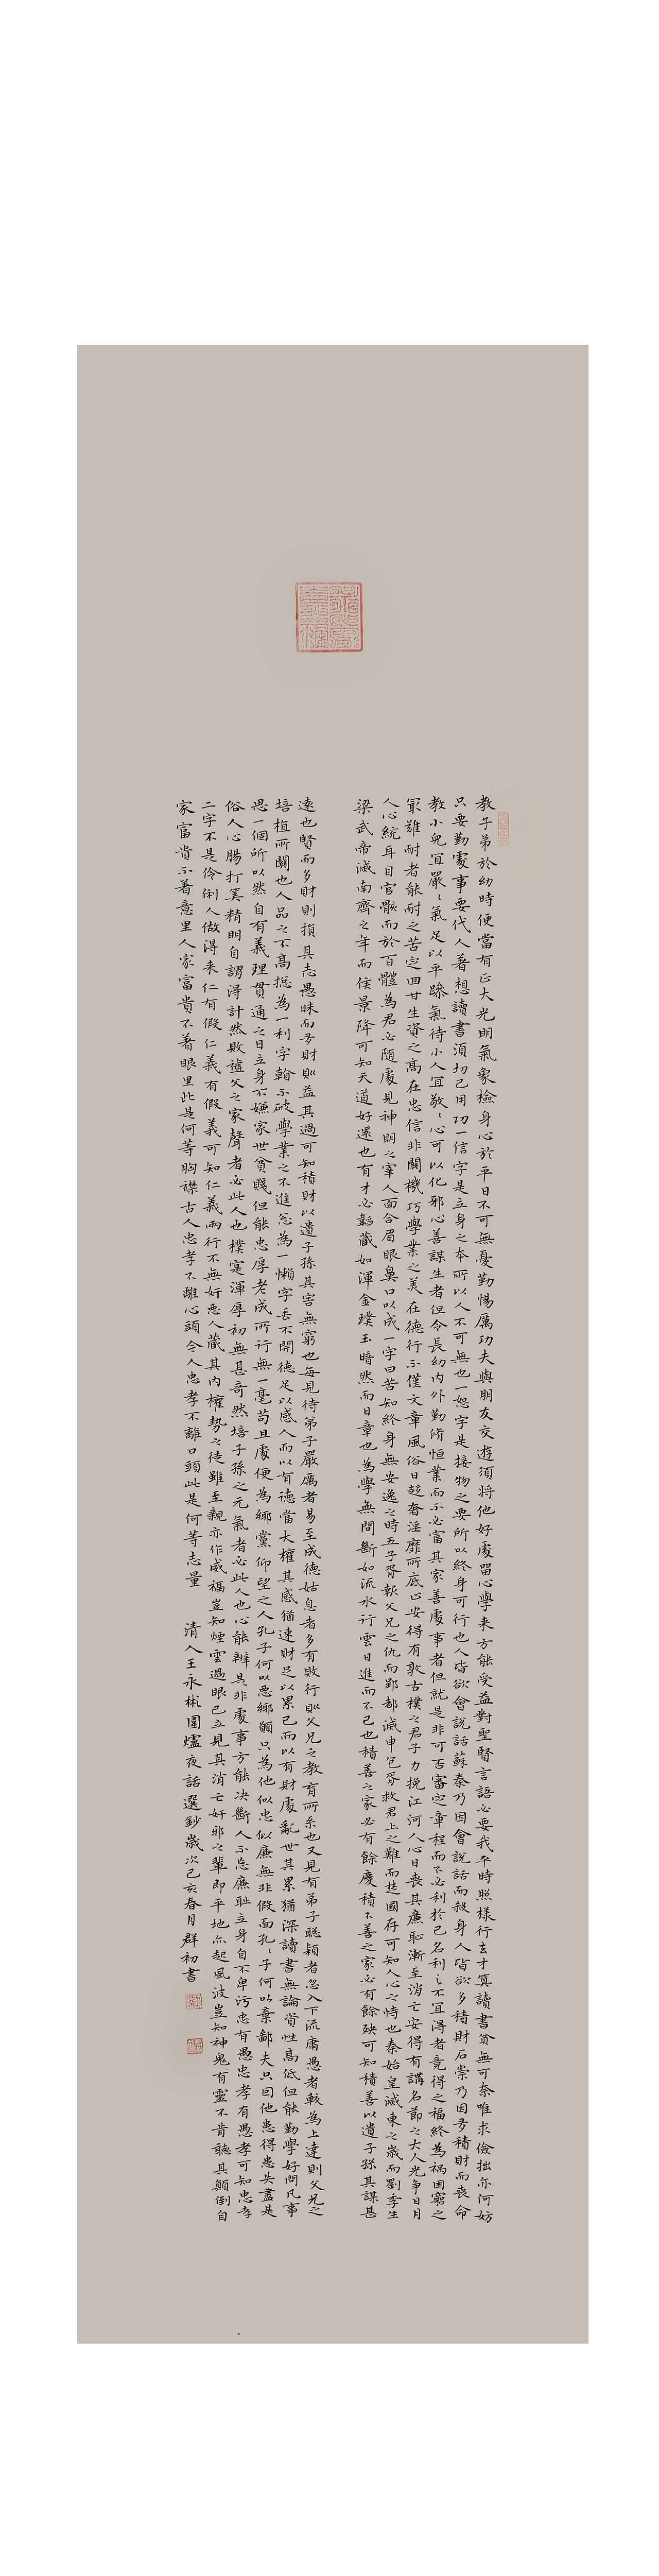 教子弟於幼時便當有正大光明氣象檢身心於平日不可無憂勤惕厲功夫與朋友交遊須將他好處留心學来方能受益對聖賢言語必要我平時照樣行去才算讀書貧無可奈唯求儉拙亦何妨
只要勤處事要代人著想讀書須切己用功一信字是立身之本所以人不可無也一恕字是接物之要所以終身可行也人皆欲會說話蘇秦乃因會說話而殺身人皆欲多積財石崇乃因多積財而喪命
教小兒宜嚴嚴氣足以平躁氣待小人宜敬敬心可以化邪心善謀生者但令長幼内外勤脩恒業而不必富其家善處事者但就是非可否審定章程而不必利於己名利之不宜得者竟得之福終為禍困窮之
最難耐者能耐之苦定回甘生資之高在忠信非關機巧學業之美在德行不僅文章風俗日趨奢淫靡所底止安得有敦古樸之君子力挽江河人心日喪其廉恥漸至消亡安得有講名節之大人光争日月
人心統耳目官骸而於百體為君必随處見神明之宰人面合眉眼鼻口以成一字曰苦知終身無安逸之時五子胥報父兄之仇而郢都滅申包胥救君上之難而楚國存可知人心之恃也秦始皇滅東之歲而劉季生
梁武帝滅南齊之年而侯景降可知天道好還也有才必韜藏如渾金璞玉暗然而日章也為學無間斷如流水行雲日進而不已也積善之家必有餘慶積不善之家必有餘殃可知積善以遺子孫其謀甚
遠也賢而多財則損其志愚昧而多財則益其過可知積財以遺子孫其害無窮也每見待弟子嚴厲者易至成德姑息者多有敗行則父兄之教育所系也又見有弟子聪穎者忽入下流庸愚者較為上達則父兄之
培植所關也人品之不高揔為一利字看不破學業之不進总為一懶字丢不開德足以感人而以有德當大權其感猶速財足以累己而以有財處亂世其累猶深讀書無論資性高低但能勤學好問凡事
思一個所以然自有義理貫通之日立身不嫌家世貧賤但能忠厚老成所行無一毫苟且處便為鄉黨仰望之人孔子何以惡鄉願只為他似忠似廉無非假面孔孔子何以棄鄙夫只因他患得患失盡是
俗人心腸打算精明自謂得計然敗祖父之家聲者必此人也樸實渾厚初無甚奇然培子孫之元氣者必此人也心能辨是非處事方能决斷人不忘廉恥立身自不卑污忠有愚忠孝有愚孝可知忠孝
二字不是伶俐人做得来仁有假仁義有假義可知仁義兩行不無奸惡人藏其内權勢之徒雖至親亦作威福豈知煙雲過眼已立見其消亡奸邪之輩即平地亦起風波豈知神鬼有靈不肯聽其顛倒自
家富貴不著意里人家富貴不著眼里此是何等胸襟古人忠孝不離心頭今人忠孝不離口頭此是何等志量 清人王永彬圍爐夜話選鈔歲次己亥春月群初書